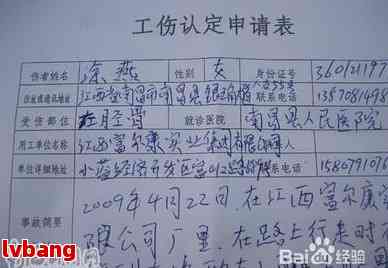 工伤认定申请表
伤者姓名 涂燕 性别 女 身份证号 36012197
住址或通讯地址 江西省南昌市南昌县 联系电话 1357081498
受伤部位 左胫骨 就诊医院 南昌县人民医院
用工单位名称 江西富尔康实业集团有限公司
单位详细地址 小蓝经济开发区富山 路 联系电话 1580791016
事故简要 2009年4月22日,在江西富尔康实
限公司厂里,在路上行走时
lvbang
Baidu经验